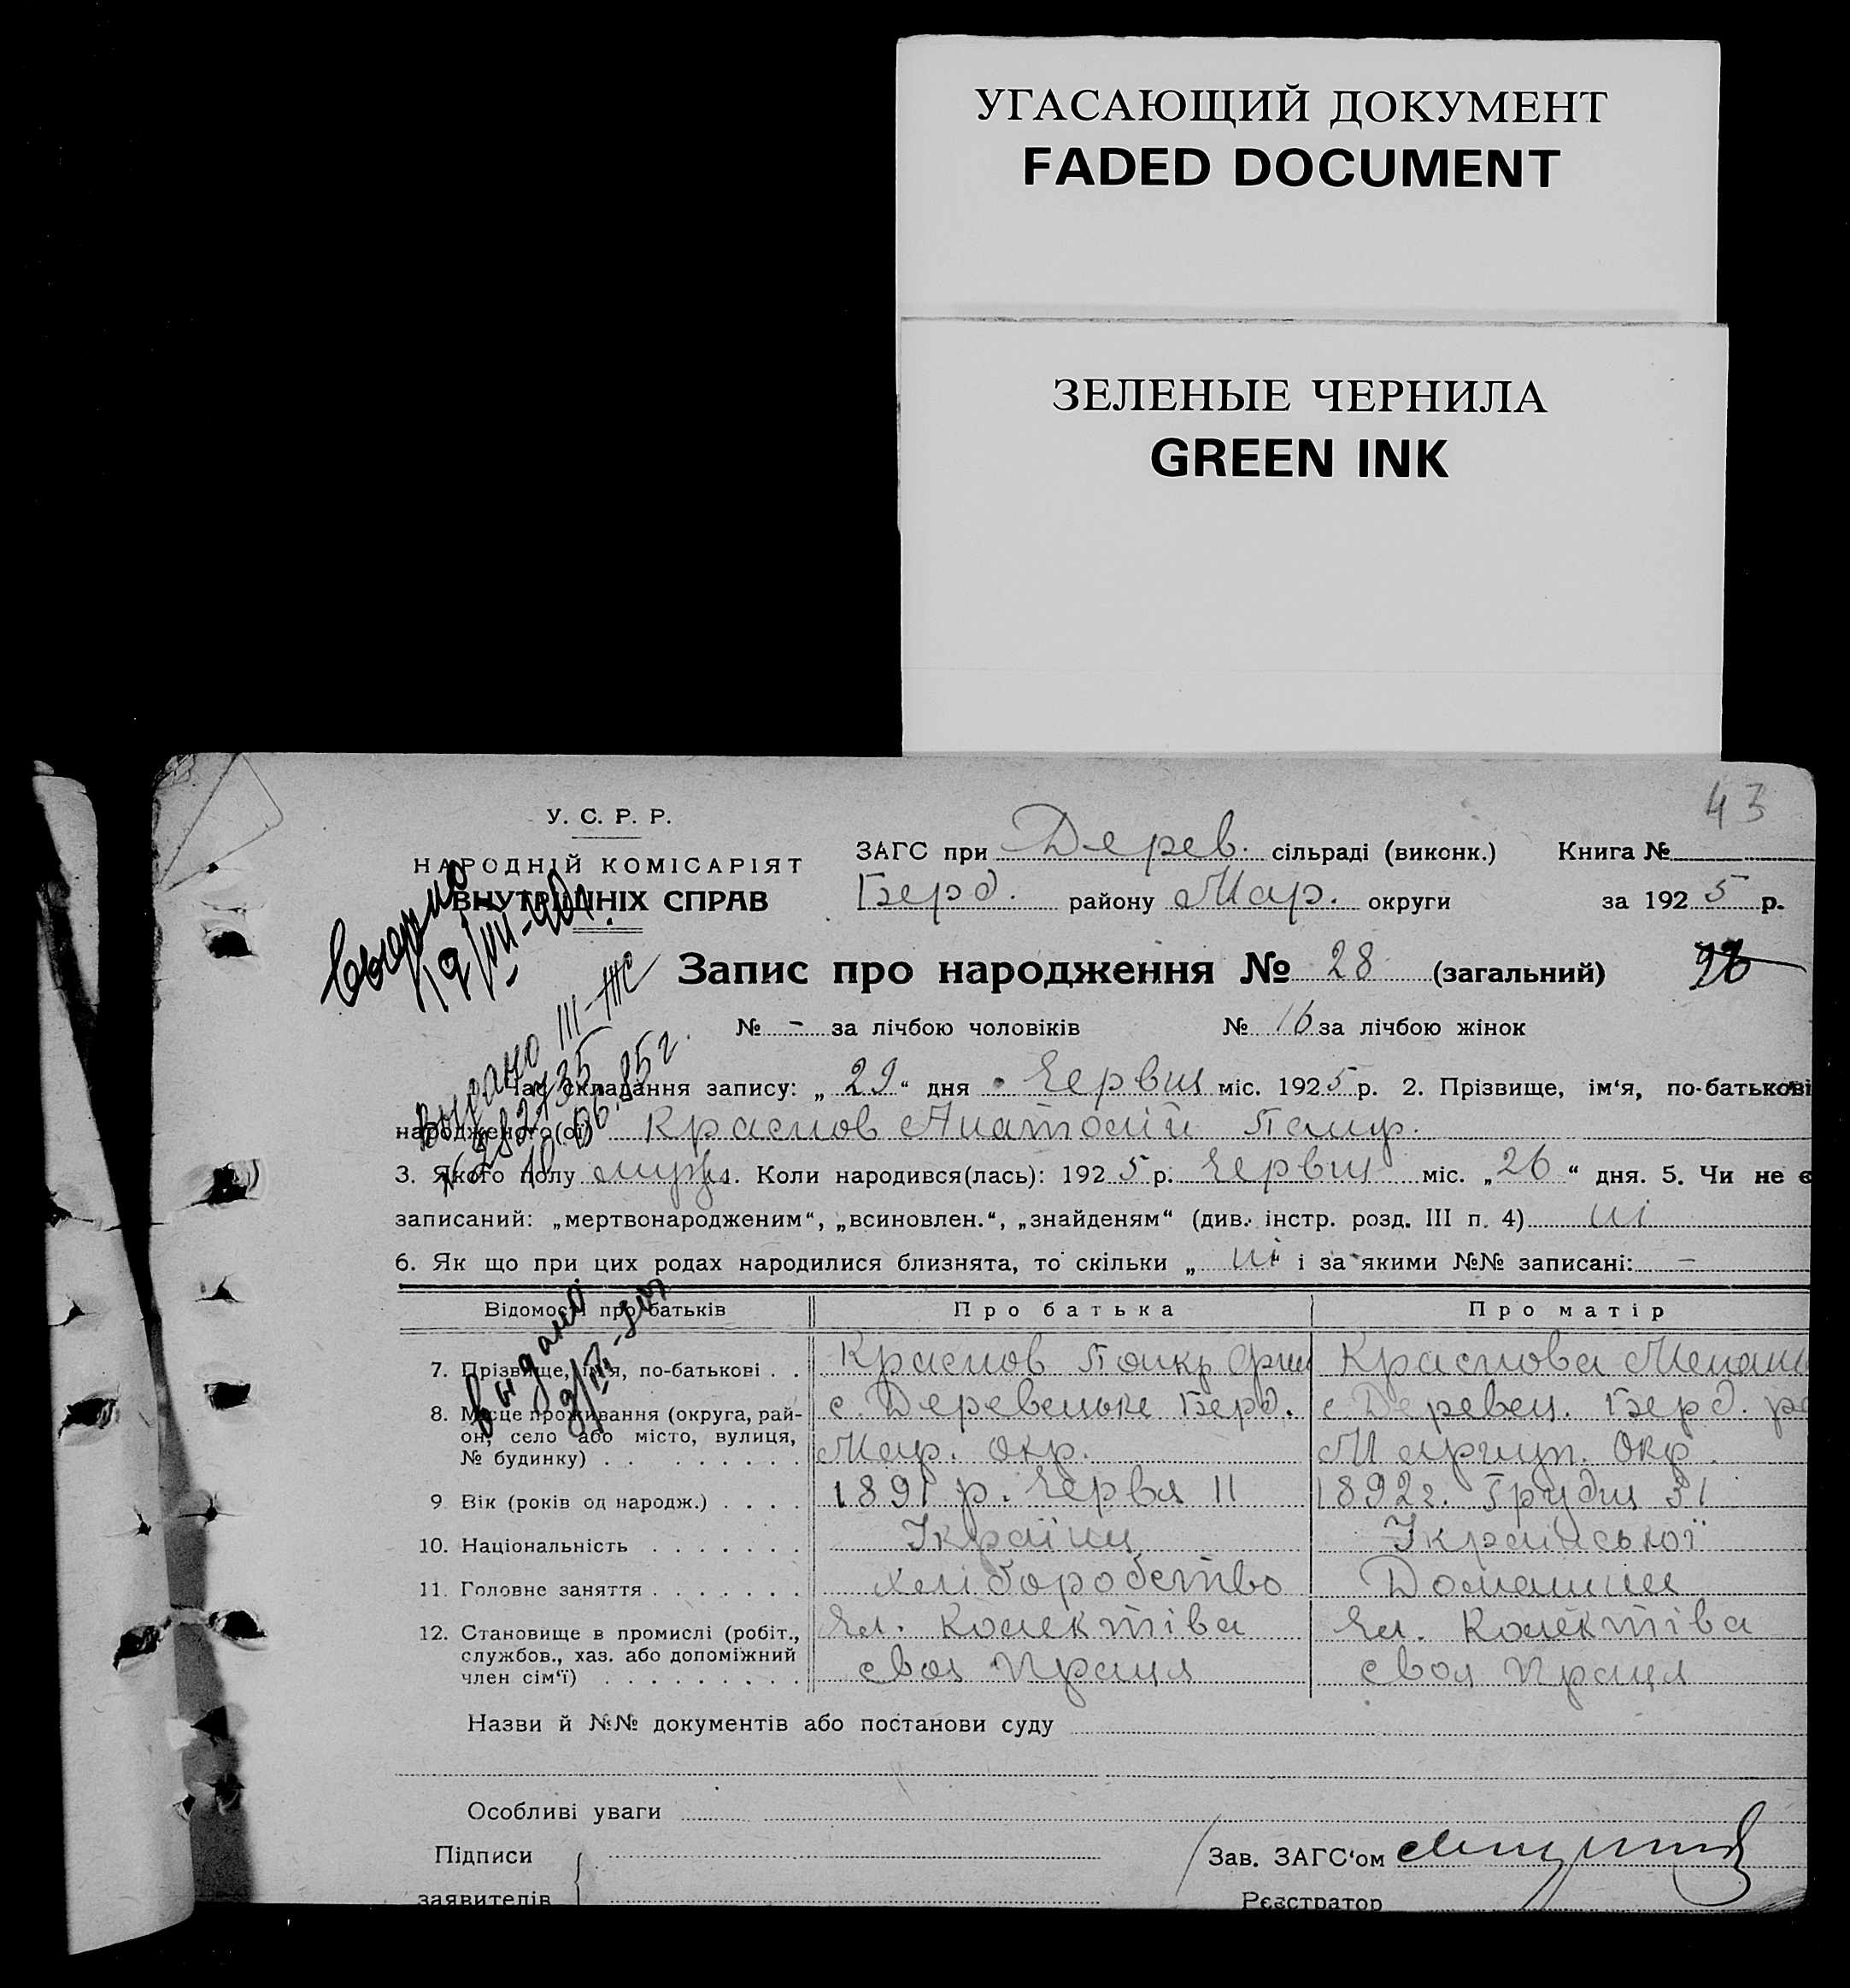 УГАСАЮЩИЙ ДОКУМЕНТ
FADED DOCUMENT
ЗЕЛЕНЫЕ ЧЕРНИЛА
GREEN INK
43
У. С. Р. Р.
НАРОДНІЙ КОМІСАРІЯТ
ВНУТРІШНІХ СПРАВ
ЗАГС при Дерев. сільраді (виконк.) Книга №
Берд. району Мар. округи за 1925 р.
Запис про народження № 28 (загальний)
№ - за лічбою чоловіків № 16 за лічбою жінок
Час складання запису: „29“ дня Червня міс. 1925 р. 2. Прізвище, ім‘я, по-батькові
народженого(ої) Краснов Анатолій
3. Якого полу муж. 4. Коли народився(лась): 1925 р. Червня міс. „26“ дня. 5. Чи не є
записаний: „мертвонародженим“, „всиновлен.“, „знайденям“ (див. інстр. розд. III п. 4) ні
6. Як що при цих родах народилися близнята, то скільки „ ні і за якими №№ записані: —
Відомості про батьків Про батька Про матір
7. Прізвище, ім‘я, по-батькові . . Краснов Краснова
8. Місце проживання (округа, рай-
он, село або місто, вулиця,
№ будинку) . . . . . . . . .
с. Деревецьке Берд.
Мар. окр.
с. Деревец. Берд. ра
Маріуп. Окр.
9. Вік (років од народж.) . . . . 1891 р. Червя 11 1892 г. Грудня 31
10. Національність . . . . . . . Українец Української
11. Головне заняття . . . . . . . хліборобство Домашня
12. Становище в промислі (робіт.,
службов., хаз. або допоміжний
член сім‘ї) . . . . . . . . .
Чл. Колектіва
своя праця
Чл. Колектіва
своя праця
Назви й №№ документів або постанови суду
Особливі уваги
Підписи
заявителів
Зав. ЗАГС‘ом
Реєстратор
Выдано
Выдано III-ЖС
10.06.85 г.
Выдано